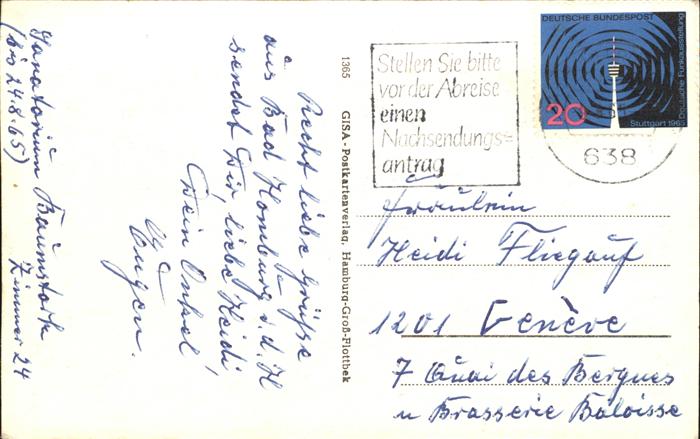 Sanatorium Baumstark
(bis 24.8.65) Zimmer 24
Recht liebe Grüße
aus Bad Homburg v.d.H
sendet Dir, liebe Heidi,
Dein Onkel
Eugen.
1365 GISA-Postkartenverlag, Hamburg-Groß-Flottbek
Stellen Sie bitte
vor der Abreise
einen
Nachsendungs-
antrag
DEUTSCHE BUNDESPOST
Deutsche Funkausstellung
20
Stuttgart 1965
638
Fräulein
Heidi Fliegauf
1201 Genève
7 Quai des Bergues
u Brasserie Bâloisse